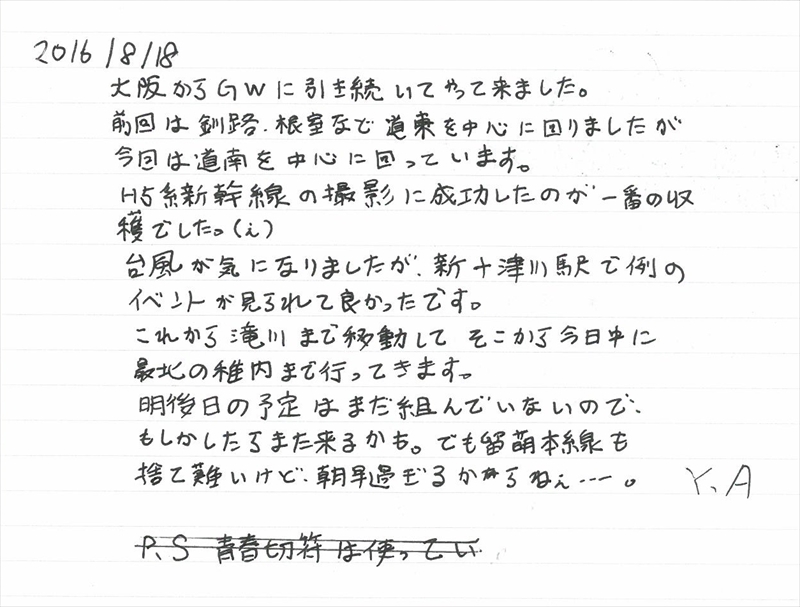 2016/8/18
大阪からGWに引き続いてやって来ました。
前回は釧路、根室など道東を中心に回りましたが
今回は道南を中心に回っています。
H5系新幹線の撮影に成功したのが一番の収
穫でした。(え)
台風が気になりましたが、新十津川駅で例の
イベントが見られて良かったです。
これから滝川まで移動してそこから今日中に
最北の稚内まで行ってきます。
明後日の予定はまだ組んでいないので、
もしかしたらまた来るかも。でも留萌本線も
捨て難いけど、朝早過ぎるからねぇ…。 Y.A
P.S 青春切符は使ってい